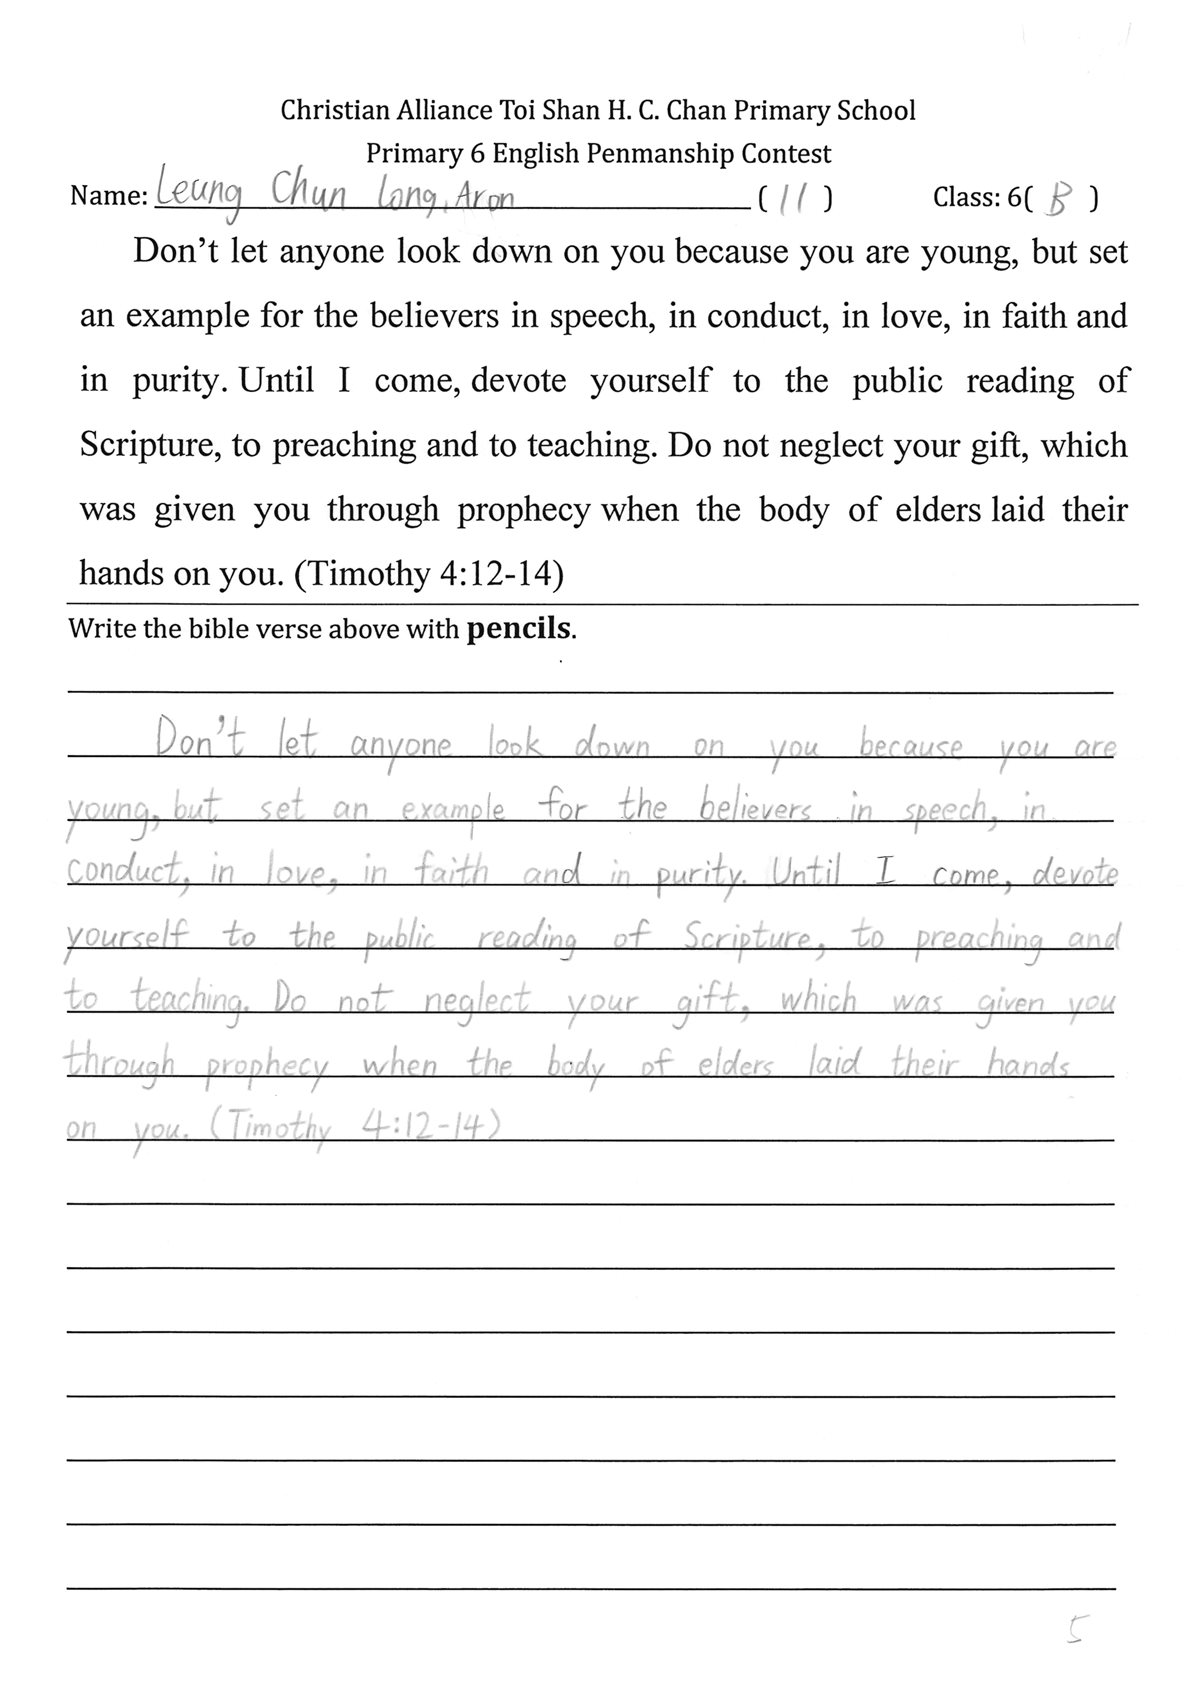 Christian Alliance Toi Shan H. C. Chan Primary School
Primary 6 English Penmanship Contest
Name: Leung Chun Long, Aron (11) Class: 6(B)
Don't let anyone look down on you because you are young, but set
an example for the believers in speech, in conduct, in love, in faith and
in purity. Until I come, devote yourself to the public reading of
Scripture, to preaching and to teaching. Do not neglect your gift, which
was given you through prophecy when the body of elders laid their
hands on you. (Timothy 4:12-14)
Write the bible verse above with pencils.
Don't let anyone look down on you because you are
young, but set an example for the believers in speech, in
conduct, in love, in faith and in purity. Until I come, devote
yourself to the public reading of Scripture, to preaching and
to teaching. Do not neglect your gift, which was given you
through prophecy when the body of elders laid their hands
on you. (Timothy 4:12-14)
5